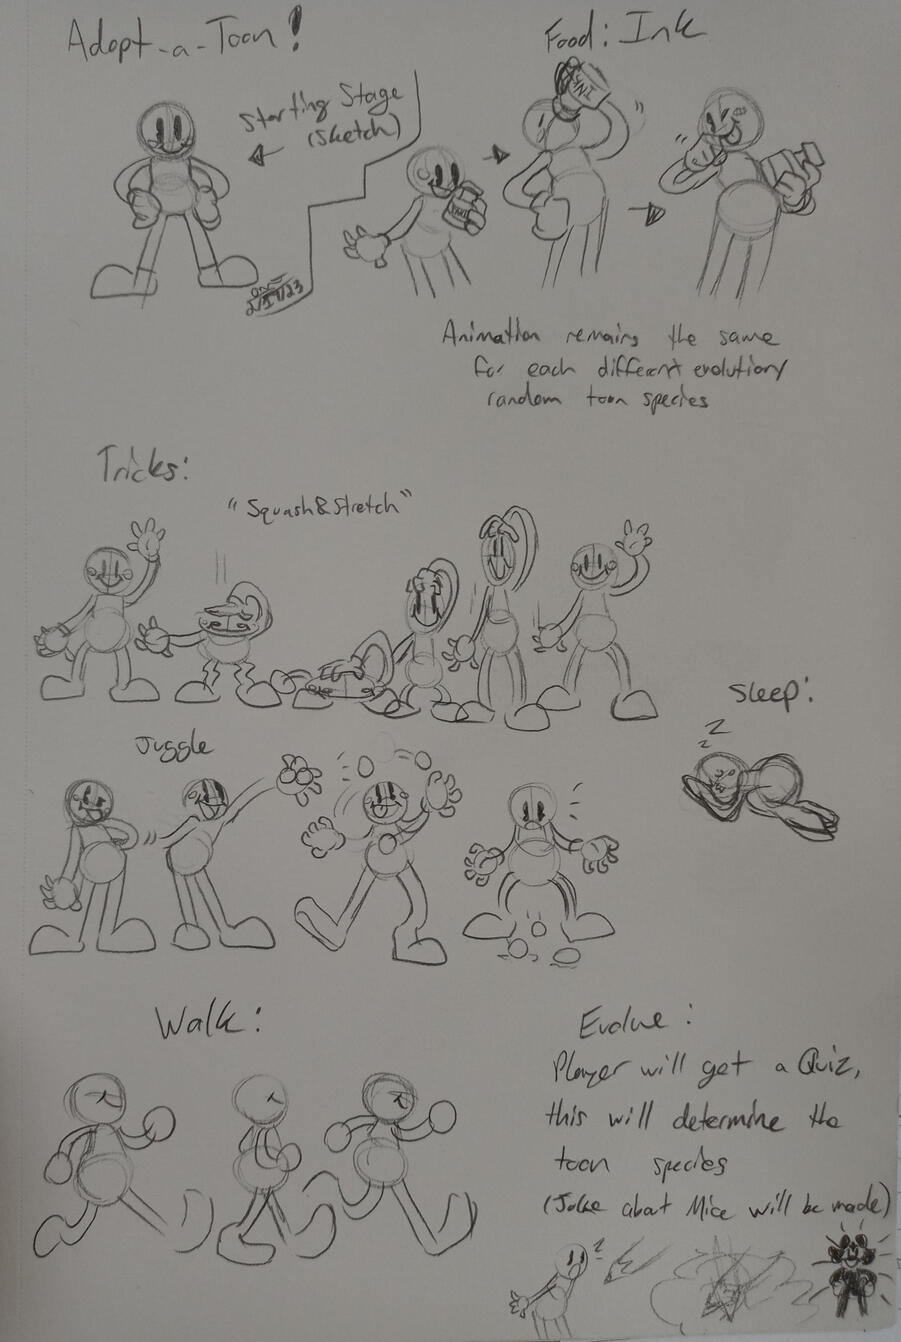 Adopt-a-Toon!
Starting Stage
(Sketch)
2/17/23
Food: Ink
INK
Animation remains the same
for each different evolutiony
random toon species
Tricks:
"Squash&Stretch"
Juggle
Sleep:
z Z
Walk:
Evolve:
Player will get a Quiz,
this will determine the
toon species
(Joke about Mice will be made)